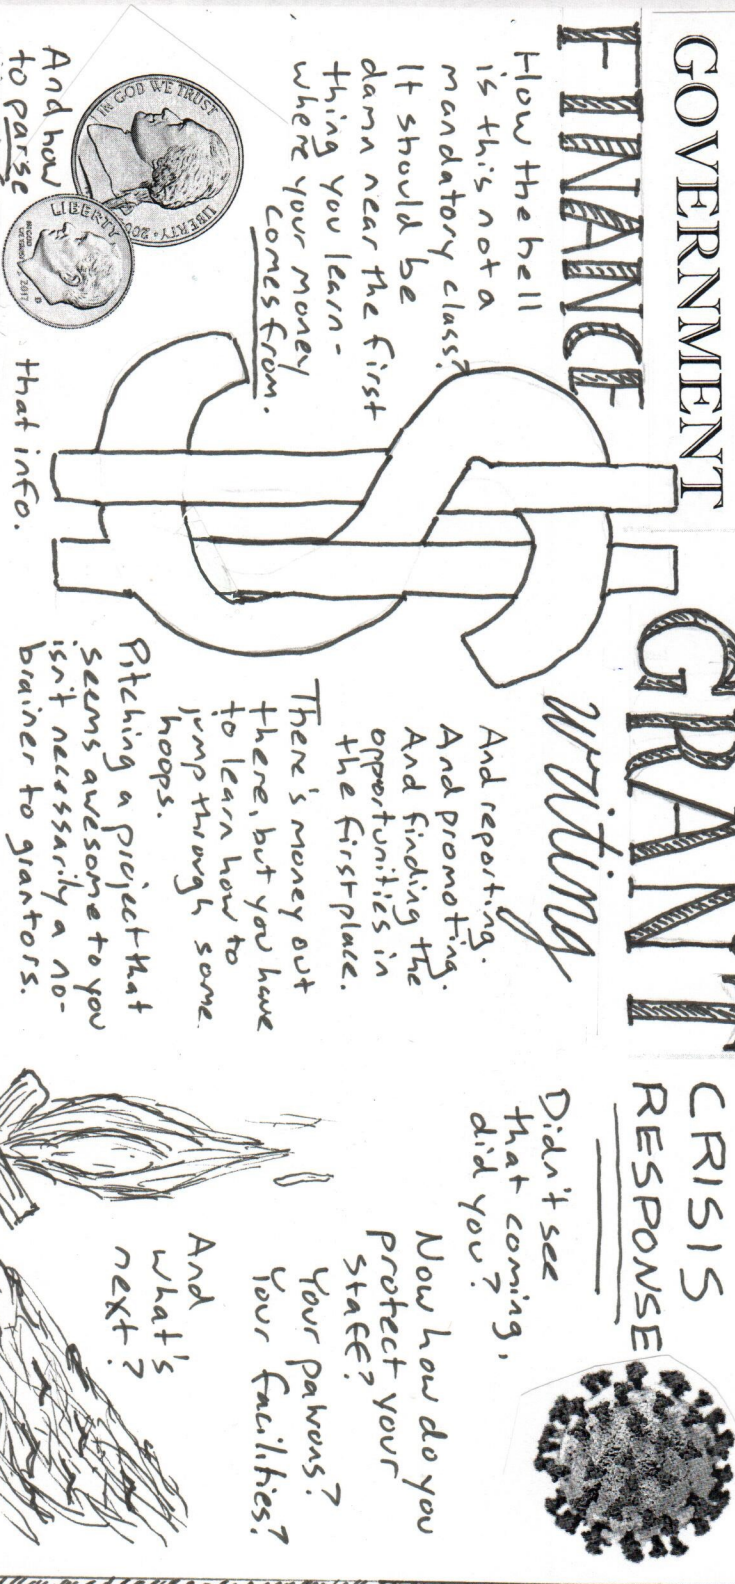 GOVERNMENT
FINANCE
How the hell
is this not a
mandatory class?
It should be
damn near the first
thing you learn-
where your money
comes from.
IN GOD WE TRUST
LIBERTY
LIBERTY
2017
D
And how
to parse
that info.
GRANT
writing
And reporting.
And promoting.
And finding the
opportunities in
the first place.
There's money out
there, but you have
to learn how to
jump through some
hoops.
Pitching a project that
seems awesome to you
isn't necessarily a no-
brainer to grantors.
CRISIS
RESPONSE
Didn't see
that coming,
did you?
Now how do you
protect your
staff?
Your patrons?
Your facilities?
And
what's
next?